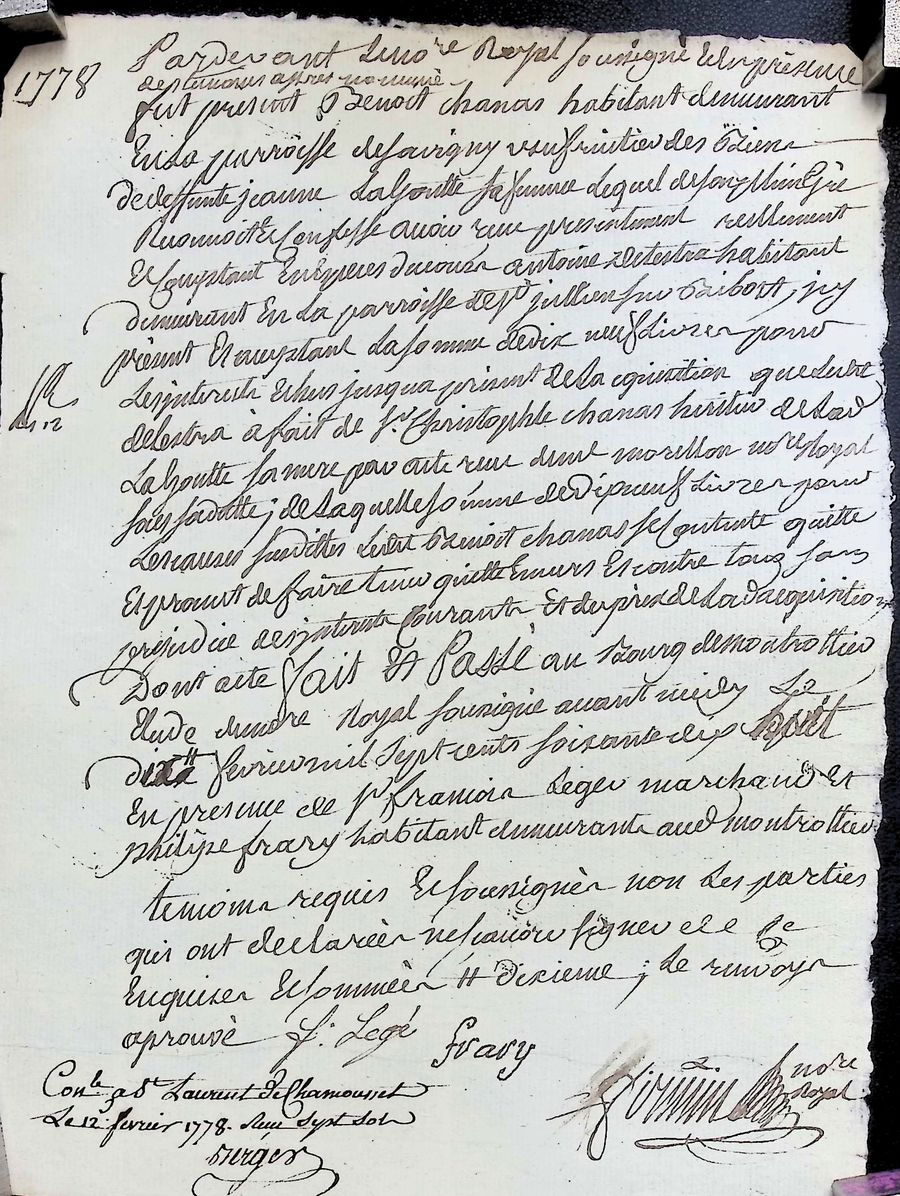 1778
Pardevant Le no.re Royal soussigné Et En présence
des temoins apres nommé
fut present Benoit chanas habitant demeurant
En La parroisse de savigny usufruitier des Biens
de deffunte jeanne Laboutte sa femme Lequel de son plein gré
Reconnoit Et Confesse avoir reçu presentement reellement
Et Comptant En Especes du cours antoine delestra habitant
demeurant En La parroisse de s.t jullien sur Bibost, icy
présent Et acceptant La somme de dix neuf Livres pour
Les interets Echus jusqua présent de La cquisition que Ledit
delestra à fait de s.r Christophle chanas heritier de Lad
Laboutte sa mere par acte reçu du me morillon no.re Royal
sous sa datte ; de Laquelle somme de dixneuf Livres pour
Les causes susdittes Ledit Benoit chanas se Contente quitte
Et promet de faire tenir quitte Envers Et contre tous sans
prejudice des interets Courants Et du prix de Lad acquisition
Dont acte fait Et Passé au Bourg de montrottier
Etude du no.re Royal soussigné avant midy Le
dix fevrier mil sept cents soixante dix huit
En presence de s.r francois Leger marchand Et
philipe frary habitant demeurants aud montrottier
temoins requis Et soussignés non Les parties
qui ont declarées ne scavoir signer de ce
Enquises Et sommées # dixieme ; Le renvoys
aprouvé f. Legé
frary
no.re
Royal
Con.lé a S.t Laurent de Chamousset
Le 12 fevrier 1778. Reçu sept sols